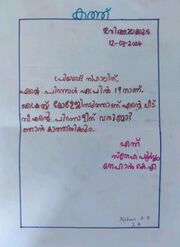 കത്ത്
ഇരിങ്ങാലക്കുട
12-03-2024
പ്രിയപ്പെട്ട നിഹാലിന്,
എന്റെ പിറന്നാൾ ഏപ്രിൽ 19 നാണ്.
കോളേജിനടുത്താണ് എന്റെ വീട്
നീ എന്റെ പിറന്നാളിന് വരുമോ
ഞാൻ കാത്തിരിക്കും.
എന്ന്
സ്നേഹപൂർവ്വം
നെഹാൻ കെ.എ
Nehan K.A